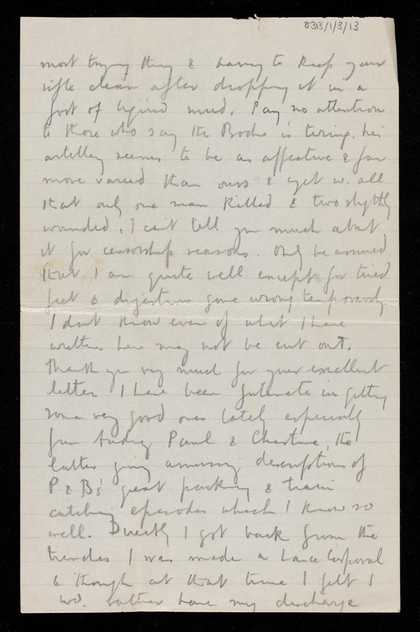 0313/1/3/13
most trying thing & having to keep your
rifle clean after dropping it in a
foot of liquid mud. Pay no attention
to those who say the Boche is tiring, his
artillery seems to be as effective & far
more varied than ours & yet w. all
that only one man killed & two slightly
wounded. I can't tell you much about
it for censorship reasons. Only be assured
that I am quite well except for tired
feet & digestions gone wrong temporarily
I don't know even if what I have
written here may not be cut out.
Thank you very much for your excellent
letter. I have been fortunate in getting
some very good ones lately especially
from Audrey Paul & Christine, the
latter giving amusing descriptions of
P & B's great packing & train
catching episodes which I know so
well. Directly I got back from the
trenches I was made a Lance Corporal
& though at that time I felt I
wd. rather have my discharge